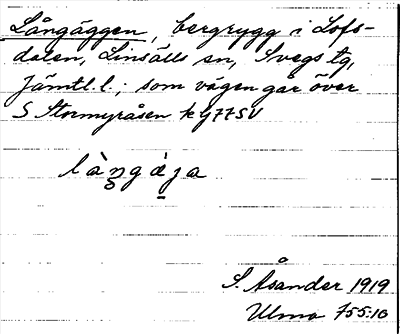 Långäggen, bergrygg i Lofs-
dalen, Linsälls sn, Svegs tg,
Jämtl. l.; som vägen går över
S Stormyråsen
làŋgä̀ja
S. Åsander 1919
Ulma 755:10